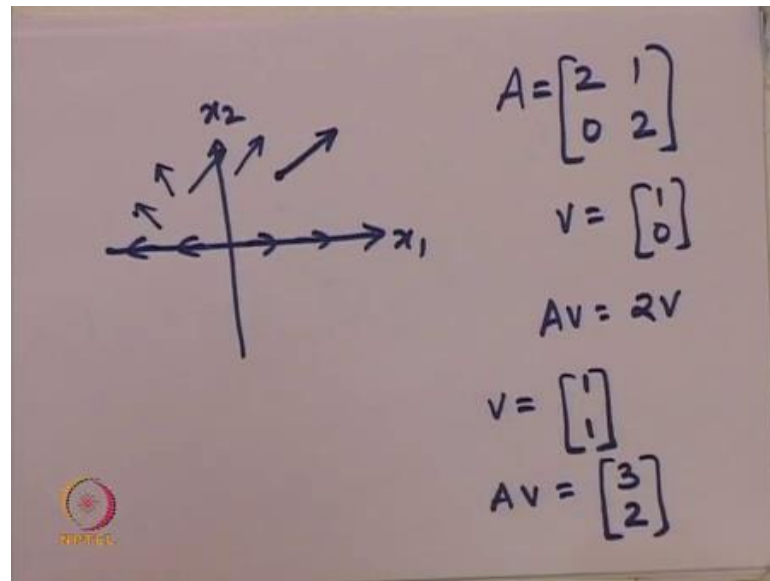 x2
x1
A = [2 1
0 2]
v = [1
0]
Av = 2v
v = [1
1]
Av = [3
2]
NPTEL